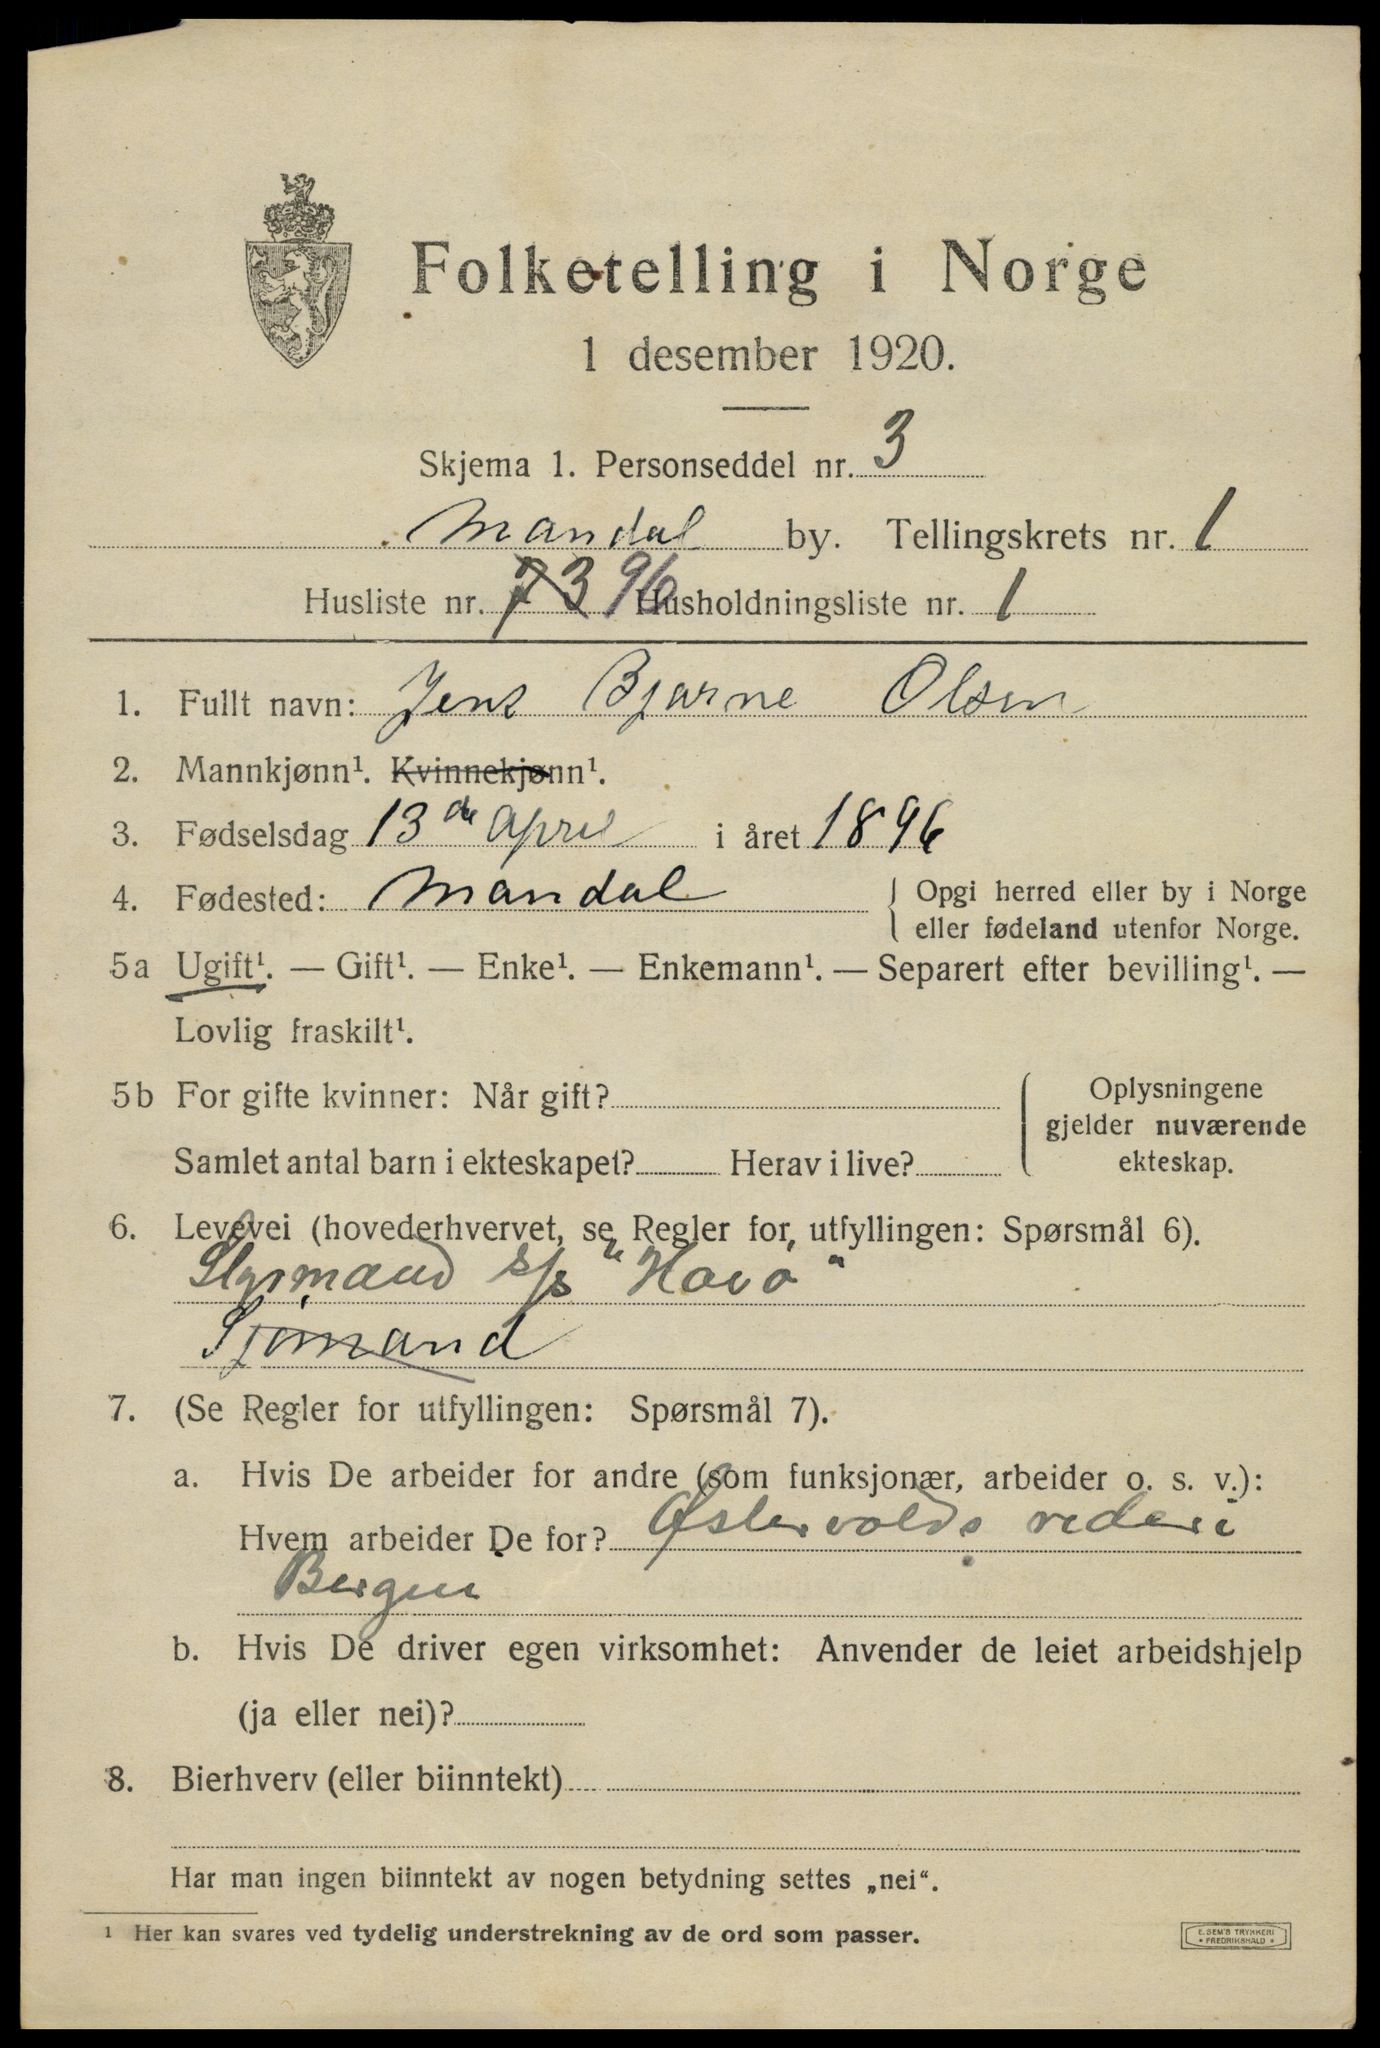 Folketelling i Norge
1 desember 1920.
Skjema 1. Personseddel nr. 3
Mandal by. Tellingskrets nr. 1
Husliste nr. 73 96 Husholdningsliste nr. 1
1. Fullt navn: Jens Bjarne Olsen
2. Mannkjønn¹. Kvinnekjønn¹.
3. Fødselsdag 13de April i året 1896
4. Fødested: Mandal
{ Opgi herred eller by i Norge
eller fødeland utenfor Norge.
5a Ugift¹. — Gift¹. — Enke¹. — Enkemann¹. — Separert efter bevilling¹. —
Lovlig fraskilt¹.
5b For gifte kvinner: Når gift?
Samlet antal barn i ekteskapet? Herav i live?
{ Oplysningene
gjelder nuværende
ekteskap.
6. Levevei (hovederhvervet, se Regler for utfyllingen: Spørsmål 6).
Styrmand s/s "Havø"
Sjømand
7. (Se Regler for utfyllingen: Spørsmål 7).
a. Hvis De arbeider for andre (som funksjonær, arbeider o. s. v.):
Hvem arbeider De for? Østervolds rederi
Bergen
b. Hvis De driver egen virksomhet: Anvender de leiet arbeidshjelp
(ja eller nei)?
8. Bierhverv (eller biinntekt)
Har man ingen biinntekt av nogen betydning settes „nei“.
¹ Her kan svares ved tydelig understrekning av de ord som passer.
E. SEM'S TRYKKERI
* FREDRIKSHALD *